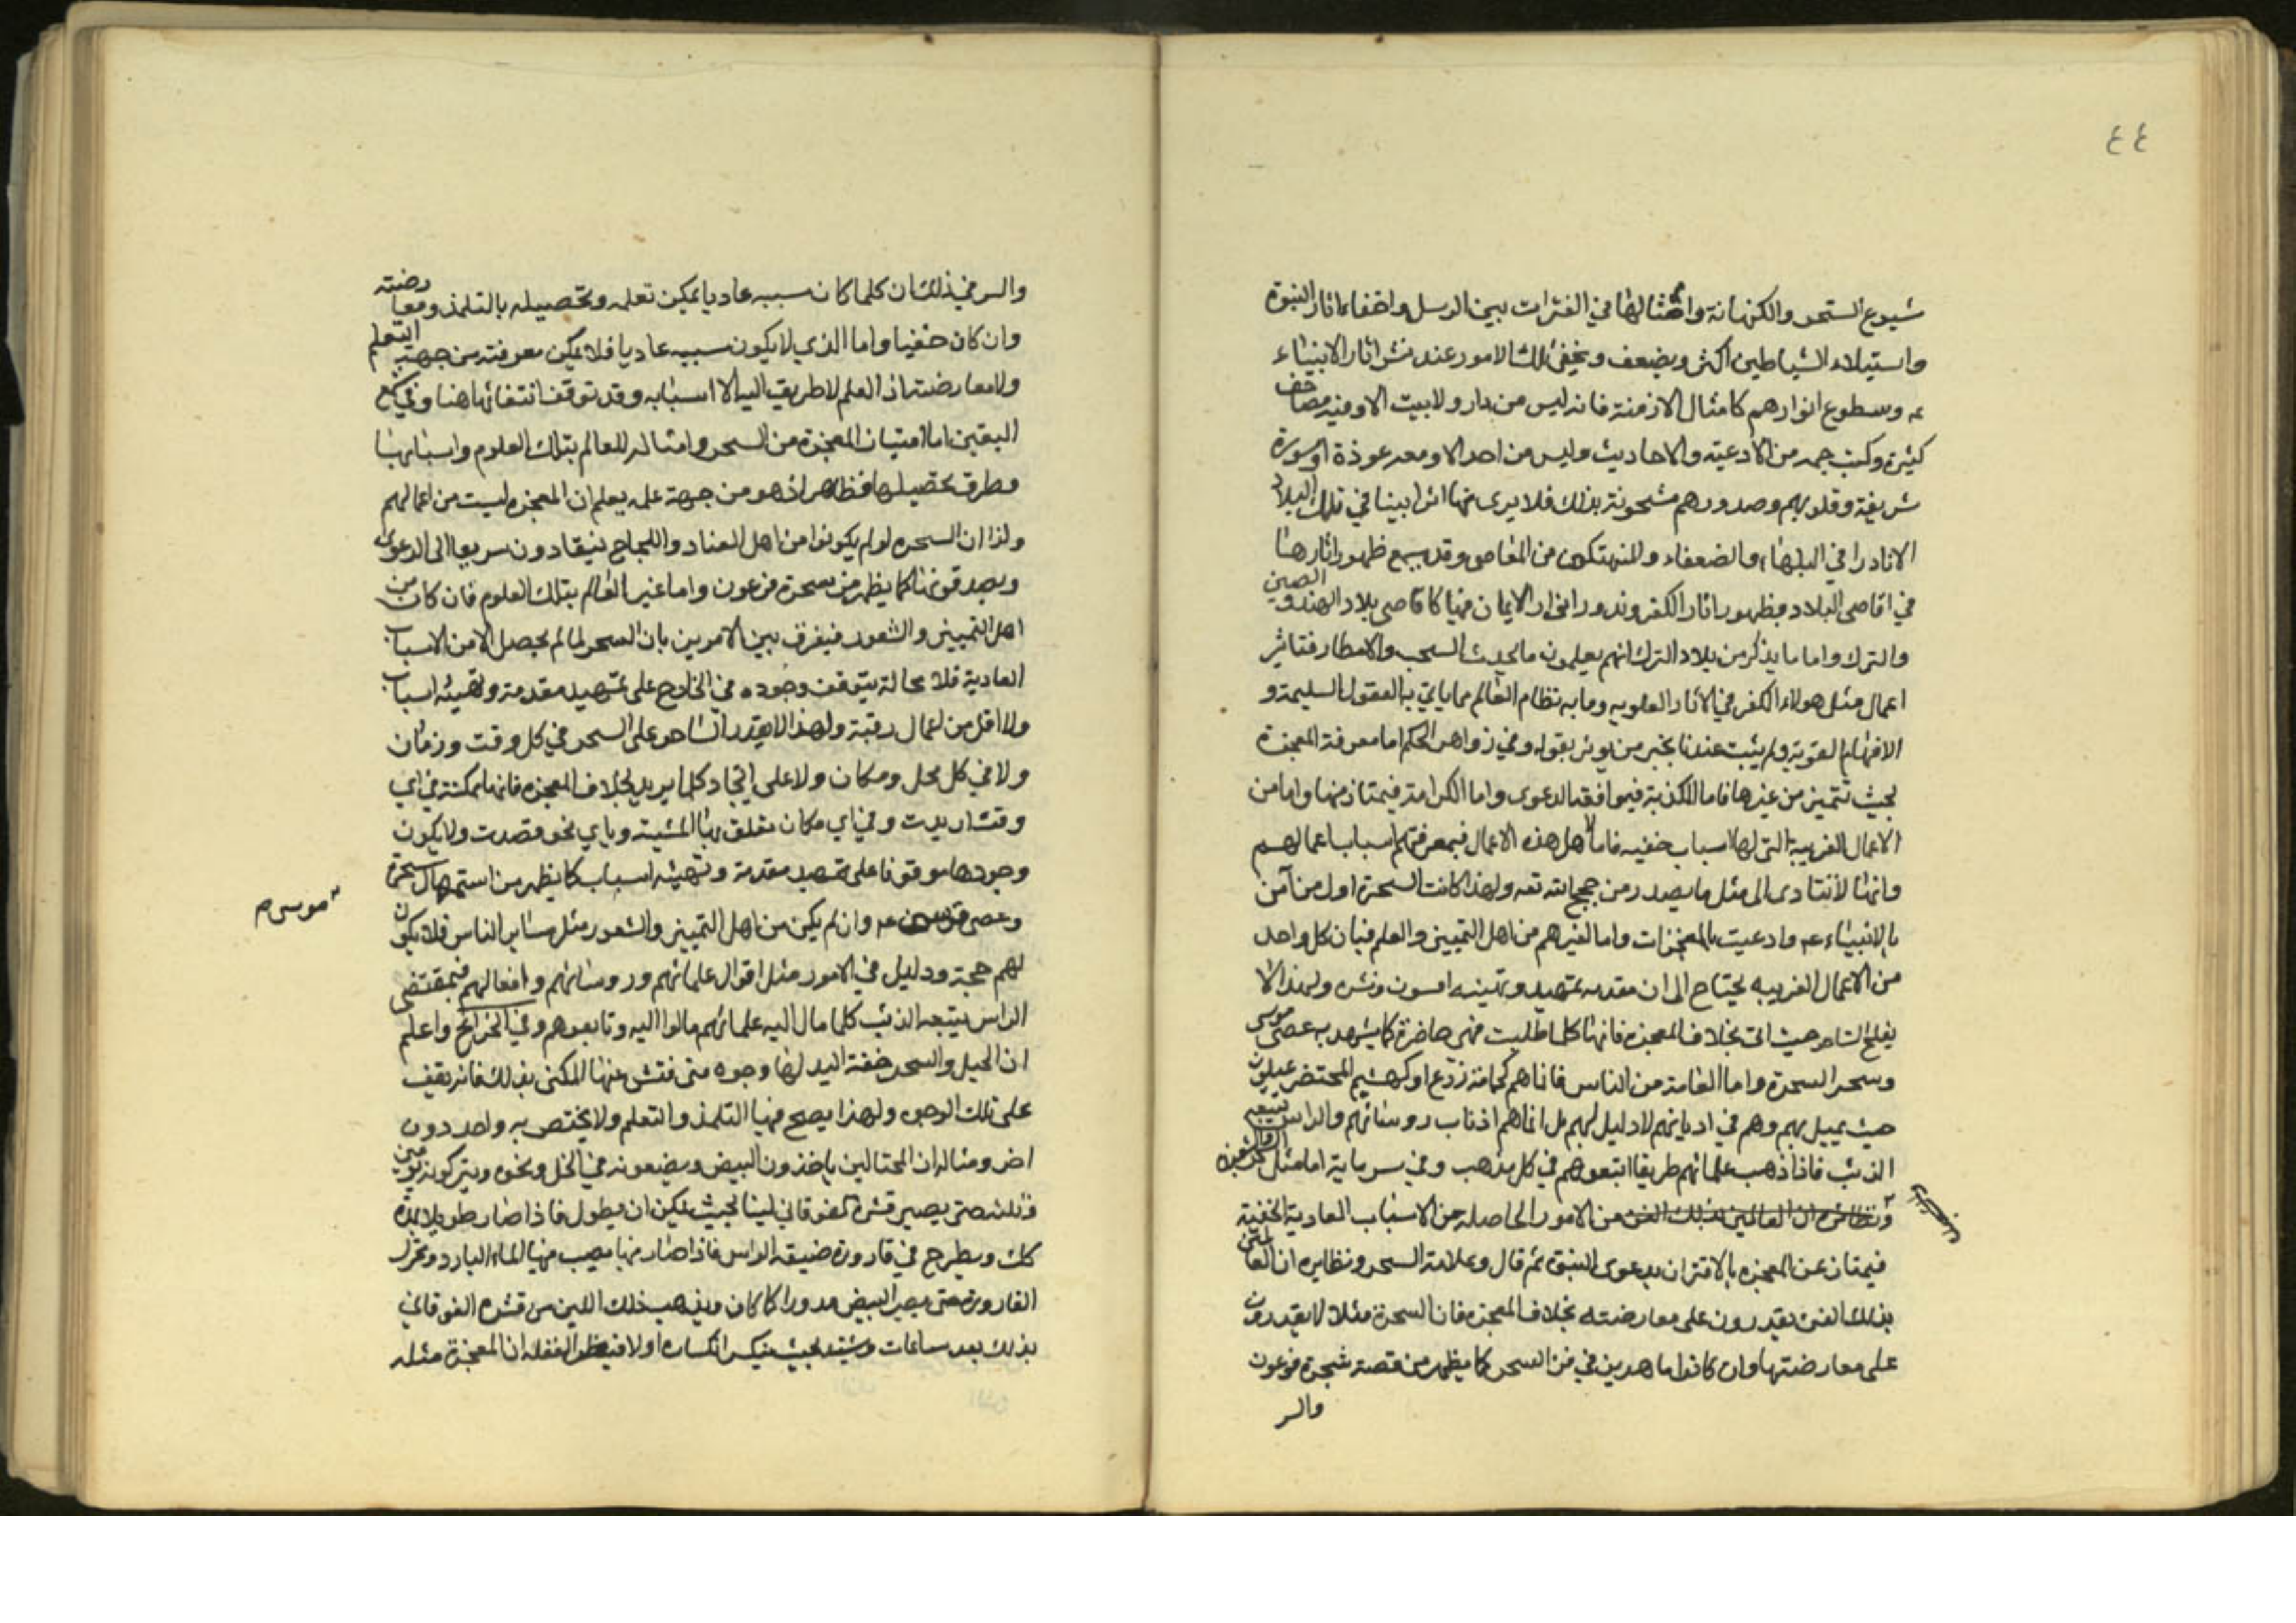 ٤٤
شيوع السحر والكهانة وامثالها في الفترات بين الرسل واخفاء اثار النبوة
واستيلاء الشياطين اكثر ويضعف ويخفى تلك الامور عند نشر اثار الانبياء
عه وسطوع انوارهم كامثال الازمنة فانه ليس من دار ولا بيت الا وفيه مصاحف
كثيرة وكتب جمه من الادعية والاحاديث وليس من احد الا ومعه عوذة او سورة
شريفة وقلوبهم وصدورهم مشحونة بذلك فلا يرى منها اثرا بينا في تلك البلاد
الا نادرا في البلهاء والضعفاء والمنهتكين من المعاصى وقد يسمع ظهور اثارها
في اقاصى البلاد مظهور اثار الكفر وندور انوار الايمان فيها كاقاصى بلاد الهند والصين
والترك واما ما يذكر من بلاد الترك انهم يعلمون ما يحدث السحب والامطار فتاثير
اعمال مثل هولاء الكفر في الاثار العلويه وما به نظام العالم مما يابى به العقول السليمة و
الافهام القويه ولم يثبت عندنا بخبر من يوثر بقوله وفي زواهر الحكم اما معرفة المعجزة
بحيث تتميز من غيرها فاما للكذبة فيموافقه الدعوى واما الكرامة فيمتاز منها واما من
الاعمال الغريبة التى لها اسباب خفيه فاما لاهل هذه الاعمال فبمعرفتهم اسباب اعمالهم
وانها لا تتادى الى مثل ما يصدر من حجج الله تعه ولهذا كانت السحرة اول من آمن
بالانبياء عه وادعيت بالمعجزات واما لغيرهم من اهل التمييز والعلم فبان كل واحد
من الاعمال الغريبه يحتاج الى ان مقدمه تمهيد وتهيئه افسون ونشره ولهذا لا
يفلح الساحر حيث اتى بخلاف المعجزة فانها كلما طلبت فهى حاضرة كما يشهد به عصى موسى
وسحر السحرة واما العامة من الناس فانا هم كخامة زرع او كهشيم المحتضر عيلون
حيث يميل بهم وهم في اديانهم لا دليل لهم بل انما هم اذناب روسائهم والراس يتبعه
الذنب فاذا ذهب علمائهم طريقا اتبعوهم في كل مذهب وفي سر مايه اما مثل
ونظائره ان العالمين بذلك الفن من الامور الحاصله من الاسباب العادية الخفية
فيمتاز عن المعجزه بالاقتران بدعوى النبوة ثم قال وعلامة السحر ونظايره ان العالمين
بذلك الفن يقدرون على معارضته بخلاف المعجزه فان السحرة مثلا لا يقدرون
على معارضتها وان كانوا ماهرين في فن السحر كما يظهر من قصة سحرة فرعون
والسر
والسر في ذلك ان كلما كان سببه عاديا يمكن تعلمه وتحصيله بالتلمذ ومعارضته
وان كان خفيا واما الذي لا يكون سببه عاديا فلا يمكن معرفته من جهة التعلم
ولا معارضته اذ العلم لا طريق اليه الا اسبابه وقد توقف انتفائها هنا وفي
اليقين اما امتياز المعجزة من السحر وامثاله للعالم بتلك العلوم واسبابها
وطرق تحصيلها فظاهر اذ هو من جهة علمه يعلم ان المعجزه ليست من اعمالهم
ولذا ان السحره لو لم يكونوا من اهل العناد واللجاج ينقادون سريعا الى الدعوى
ويصدقونها كما يظهر من سحرة فرعون واما غير العالم بتلك العلوم فان كان من
اهل التمييز والشعور فيفرق بين الامرين بان السحر لما لم يحصل الا من الاسباب
العادية فلا محالة يتوقف وجوده في الخارج على تمهيد مقدمة وتهيئه اسباب
ولا اقل من اعمال رقبة ولهذا لا يقدر الساحر على السحر في كل وقت وزمان
ولا في كل محل ومكان ولا على ايجاد كلما يريد بخلاف المعجزه فانها ممكنة في اي
وقت اريدت وفي اي مكان تعلق بها المشية وباي نحو قصدت ولا يكون
وجودها موقوفا على تمهيد مقدمة وتهيئه اسباب كما يظهر من استمهال سحرة
موسى م
وعصى عه وان لم يكن من اهل التمييز والشعور مثل ساير الناس فلا يكون
لهم حجة ودليل في الامور مثل اقوال علمائهم وروسائهم وافعالهم فبمقتضى
الراس يتبعه الذنب كلما مال اليه علمائهم مالوا اليه وتابعوهم وفي الخرائج واعلم
ان الحيل والسحر خفة اليد لها وجوه متى فتش عنها المكنى بذلك فانه يقف
على تلك الوجوه ولهذا يصح فيها التلمذ والتعلم ولا يختص به واحد دون
اخر ومثاله ان المحتالين ياخذون البيض ويضعونه في الخل ونحوه ويتركونه يومين
وثلث حتى يصير قشره الفوقاني لينا بحيث يمكن ان يطول فاذا صار طويلا بمده
كذلك ويطرح في قارورة ضيقه الراس فاذا صار فيها يصب فيها الماء البارد وتحرك
القارورة حتى يصير البيض مدورا كما كان ويذهب ذلك اللين من قشره الفوقاني
بذلك بعد ساعات ويشتد بحيث ينكسر انكساره اولا فيظن الغفله ان المعجزة مثله